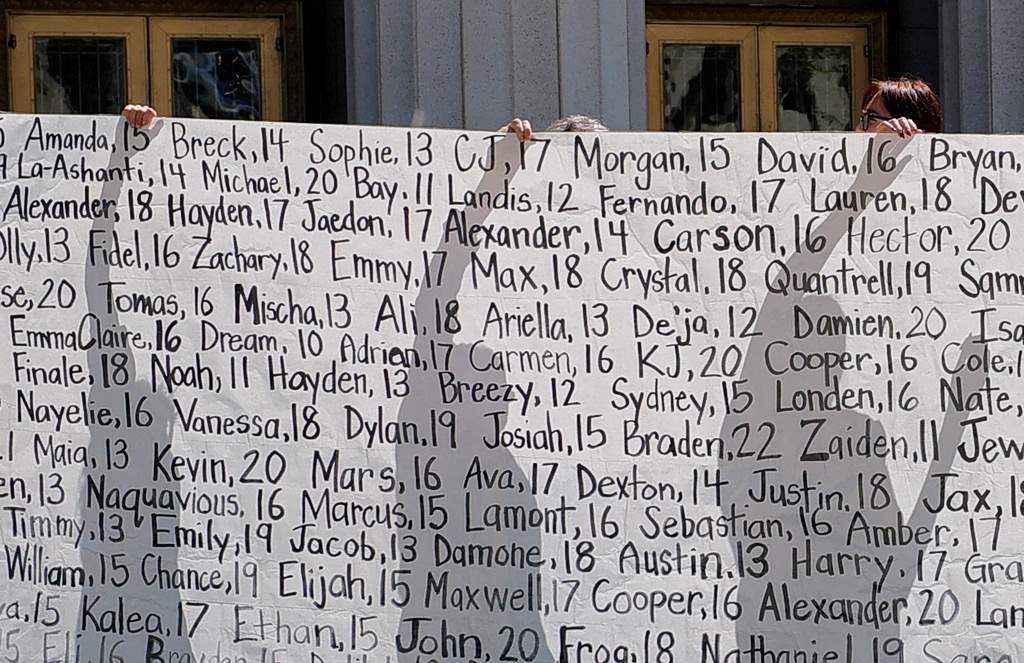 Amanda, 15 Breck, 14 Sophie, 13 CJ, 17 Morgan, 15 David, 16 Bryan,
La-Ashanti, 14 Michael, 20 Bay, 11 Landis, 12 Fernando, 17 Lauren, 18 De
Alexander, 18 Hayden, 17 Jaedon, 17 Alexander, 14 Carson, 16 Hector, 20
olly, 13 Fidel, 16 Zachary, 18 Emmy, 17 Max, 18 Crystal, 18 Quantrell, 19 Sam
se, 20 Tomas, 16 Mischa, 13 Ali, 18 Ariella, 13 De'ja, 12 Damien, 20 Isa
EmmaClaire, 16 Dream, 10 Adrien, 17 Carmen, 16 KJ, 20 Cooper, 16 Cole,
Finale, 18 Noah, 11 Hayden, 13 Breezy, 12 Sydney, 15 Londen, 16 Nate,
Nayelie, 16 Vanessa, 18 Dylan, 19 Josiah, 15 Braden, 22 Zaiden, 11 Jew
Maia, 13 Kevin, 20 Mars, 16 Ava, 17 Dexton, 14 Justin, 18 Jax,
en, 13 Naquavious, 16 Marcus, 15 Lamont, 16 Sebastian, 16 Amber, 17
Timmy, 13 Emily, 19 Jacob, 13 Damone, 18 Austin, 13 Harry, 17 Gra
William, 15 Chance, 19 Elijah, 15 Maxwell, 17 Cooper, 16 Alexander, 20 Lan
a, 15 Kalea, 17 Ethan, 15 John, 20 Frog, 18 Nathaniel, 19
Eli, 16